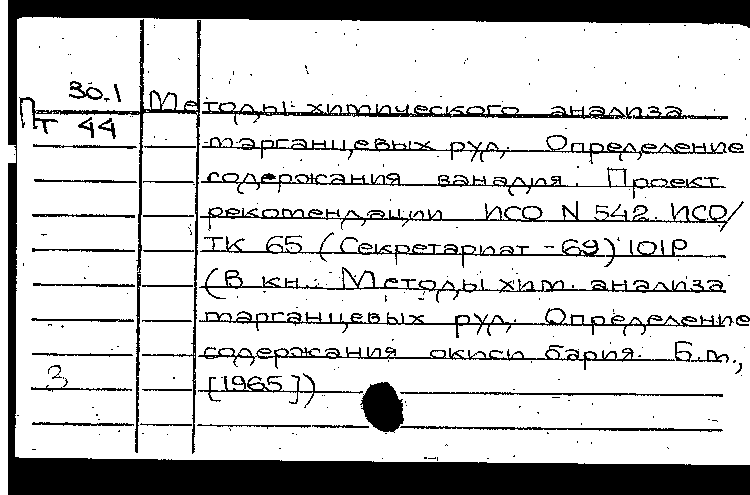 30.1 Методы химического анализа
Пт 44
марганцевых руд. Определение
содержания ванадия. Проект
рекомендации ИСО N 542. ИСО/
ТК 65 (Секретариат - 69) 101Р
(В кн.: Методы хим. анализа
марганцевых руд. Определение
содержания окиси бария. Б.м.,
3 [1965])